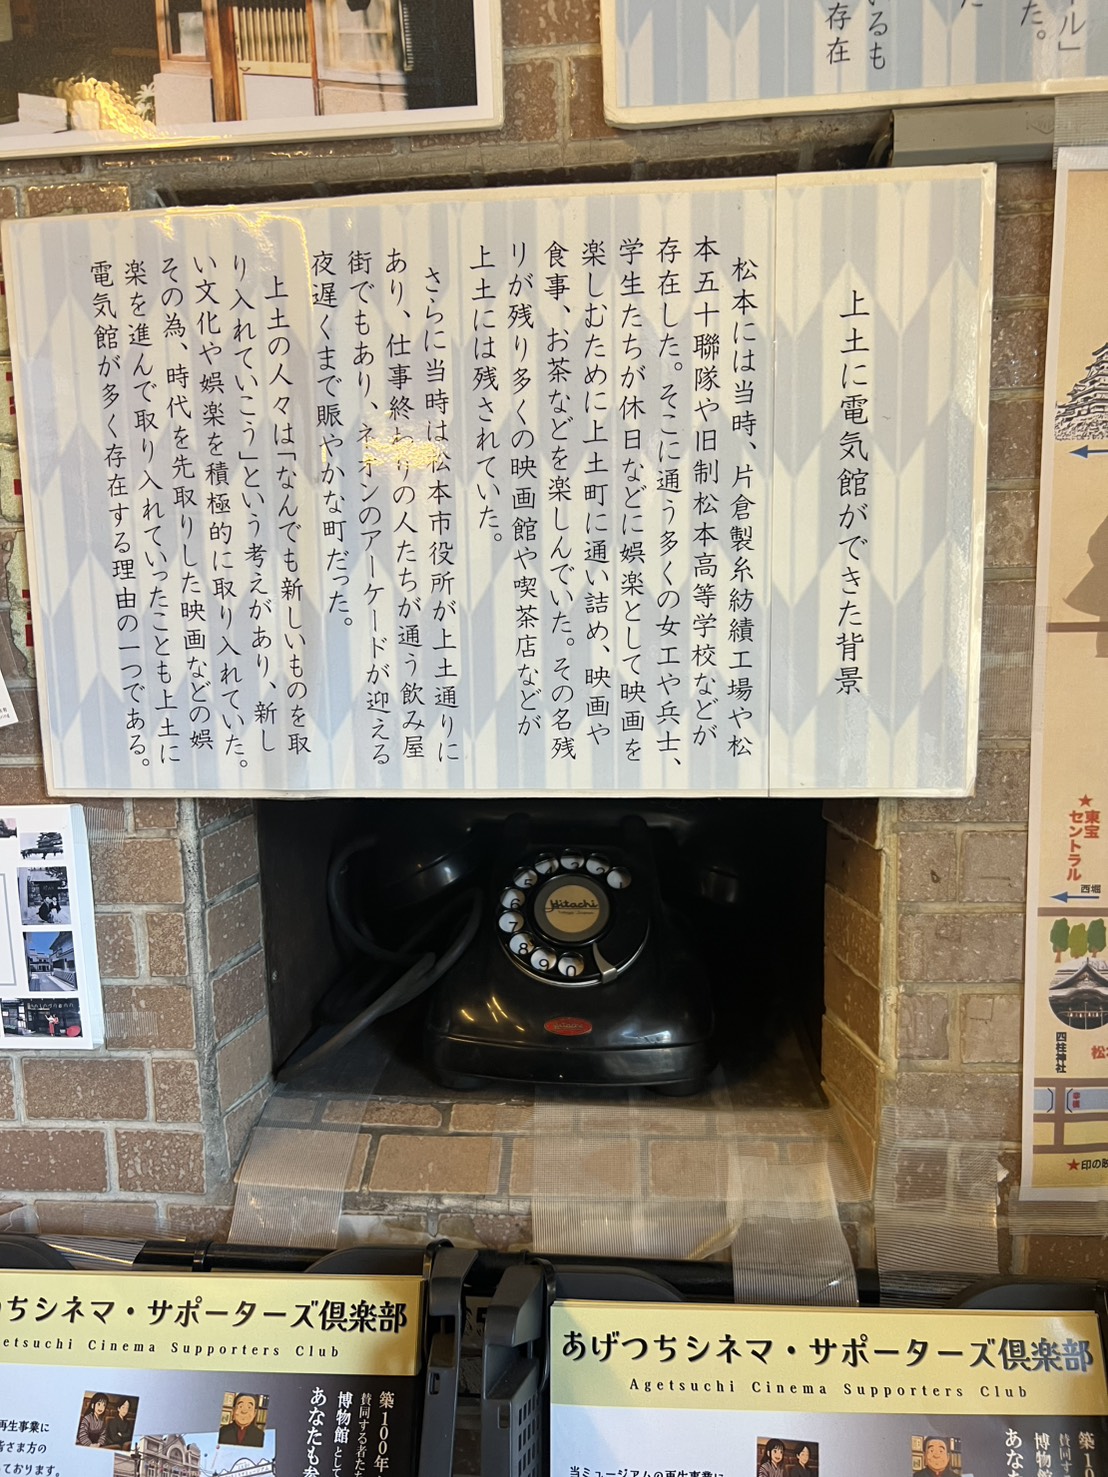 ル」
た。
いるも
存在
上土に電気館ができた背景
松本には当時、片倉製糸紡績工場や松
本五十聯隊や旧制松本高等学校などが
存在した。そこに通う多くの女工や兵士、
学生たちが休日などに娯楽として映画を
楽しむために上土町に通い詰め、映画や
食事、お茶などを楽しんでいた。その名残
りが残り多くの映画館や喫茶店などが
上土には残されていた。
さらに当時は松本市役所が上土通りに
あり、仕事終わりの人たちが通う飲み屋
街でもあり、ネオンのアーケードが迎える
夜遅くまで賑やかな町だった。
上土の人々は「なんでも新しいものを取
り入れていこう」という考えがあり、新し
い文化や娯楽を積極的に取り入れていた。
その為、時代を先取りした映画などの娯
楽を進んで取り入れていったことも上土に
電気館が多く存在する理由の一つである。
★東宝
セントラル
西堀
四柱神社
松
★印の
Hitachi
5
6
7
8
9
0
ちシネマ・サポーターズ倶楽部
getsuchi Cinema Supporters Club
築100年
賛同する者た
博物館として
あなたも参
再生事業に
皆さま方の
っております。
あげつちシネマ・サポーターズ倶楽部
Agetsuchi Cinema Supporters Club
築10
賛同す
博物
あな
当ミュージアムの再生事業に